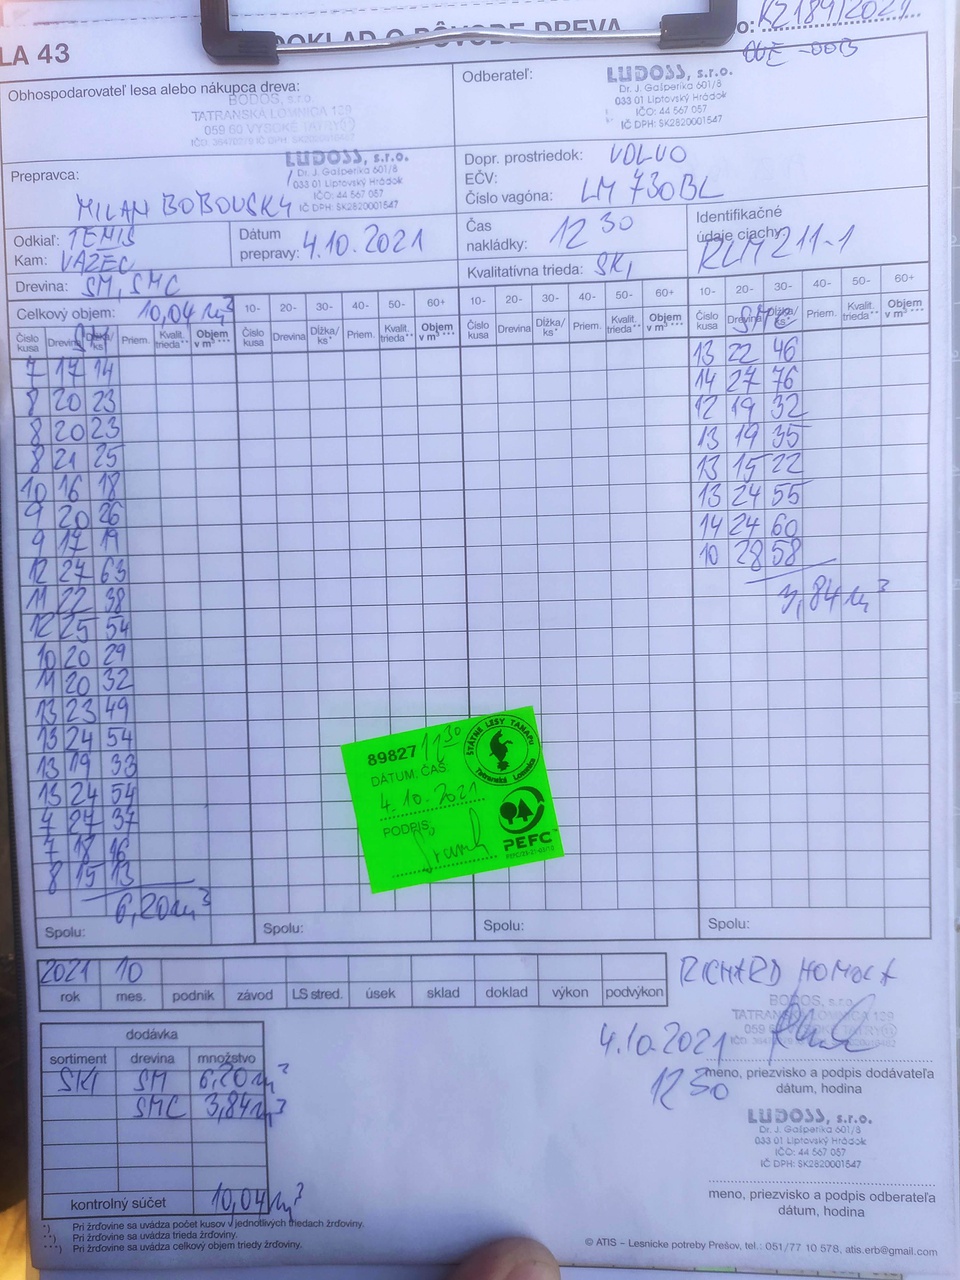 LA 43
DOKLAD O PÔVODE DREVA
Obhospodarovateľ lesa alebo nákupca dreva:
BODOS, s.r.o.
TATRANSKÁ LOMNICA 129
059 60 VYSOKÉ TATRY
Odberateľ:
LUDOSS, s.r.o.
Dr. J. Gašperíka 601/8
033 01 Liptovský Hrádok
IČO: 44 567 057
IČ DPH: SK2820001547
Prepravca:
MILAN BOBOVSKÝ
LUDOSS, s.r.o.
Dr. J. Gašperíka 601/8
033 01 Liptovský Hrádok
IČO: 44 567 057
IČ DPH: SK2820001547
Dopr. prostriedok: VOLVO
EČV:
Číslo vagóna: LM 730BL
Odkiaľ: TEMIS
Kam: VAZEC
Dátum
prepravy: 4.10.2021
Čas
nakládky: 12 30
Identifikačné
údaje ciachy:
RLM 211-1
Drevina: SM, SMC
Kvalitatívna trieda: SK1
Celkový objem: 10,04 m³
10- 20- 30- 40- 50- 60+
10- 20- 30- 40- 50- 60+
10- 20- 30- 40- 50- 60+
Číslo kusa Drevina Dĺžka/ks* Priem. Kvalit. trieda** Objem v m³***
Číslo kusa Drevina Dĺžka/ks* Priem. Kvalit. trieda** Objem v m³***
Číslo kusa Drevina Dĺžka/ks* Priem. Kvalit. trieda** Objem v m³***
Číslo kusa Drevina Dĺžka/ks* Priem. Kvalit. trieda** Objem v m³***
SM
7 17 14
8 20 23
8 20 23
8 21 25
10 16 18
9 20 26
9 17 19
12 27 63
11 22 38
12 25 54
10 20 29
11 20 32
13 23 49
13 24 54
13 19 33
13 24 54
7 27 37
7 18 16
8 15 13
6,20 m³
SMC
13 22 46
14 27 76
12 19 32
13 19 35
13 15 22
13 24 55
14 24 60
10 28 58
3,84 m³
89827 11 30
DÁTUM, ČAS:
4.10.2021
PODPIS:
ŠTÁTNE LESY TANAPU
Tatranská Lomnica
PEFC
Spolu:
Spolu:
Spolu:
Spolu:
2021 10
rok mes. podnik závod LS stred. úsek sklad doklad výkon podvýkon
dodávka
sortiment drevina množstvo
SK1 SM 6,20 m³
SMC 3,84 m³
kontrolný súčet 10,04 m³
BODOS, s.r.o.
TATRANSKÁ LOMNICA 129
4.10.2021
12 30
meno, priezvisko a podpis dodávateľa
dátum, hodina
LUDOSS, s.r.o.
Dr. J. Gašperíka 601/8
033 01 Liptovský Hrádok
IČO: 44 567 057
IČ DPH: SK2820001547
meno, priezvisko a podpis odberateľa
dátum, hodina
*) Pri žrďovine sa uvádza počet kusov v jednotlivých triedach žrďoviny.
**) Pri žrďovine sa uvádza trieda žrďoviny.
***) Pri žrďovine sa uvádza celkový objem triedy žrďoviny.
© ATIS – Lesnícke potreby Prešov, tel.: 051/77 10 578, atis.erb@gmail.com